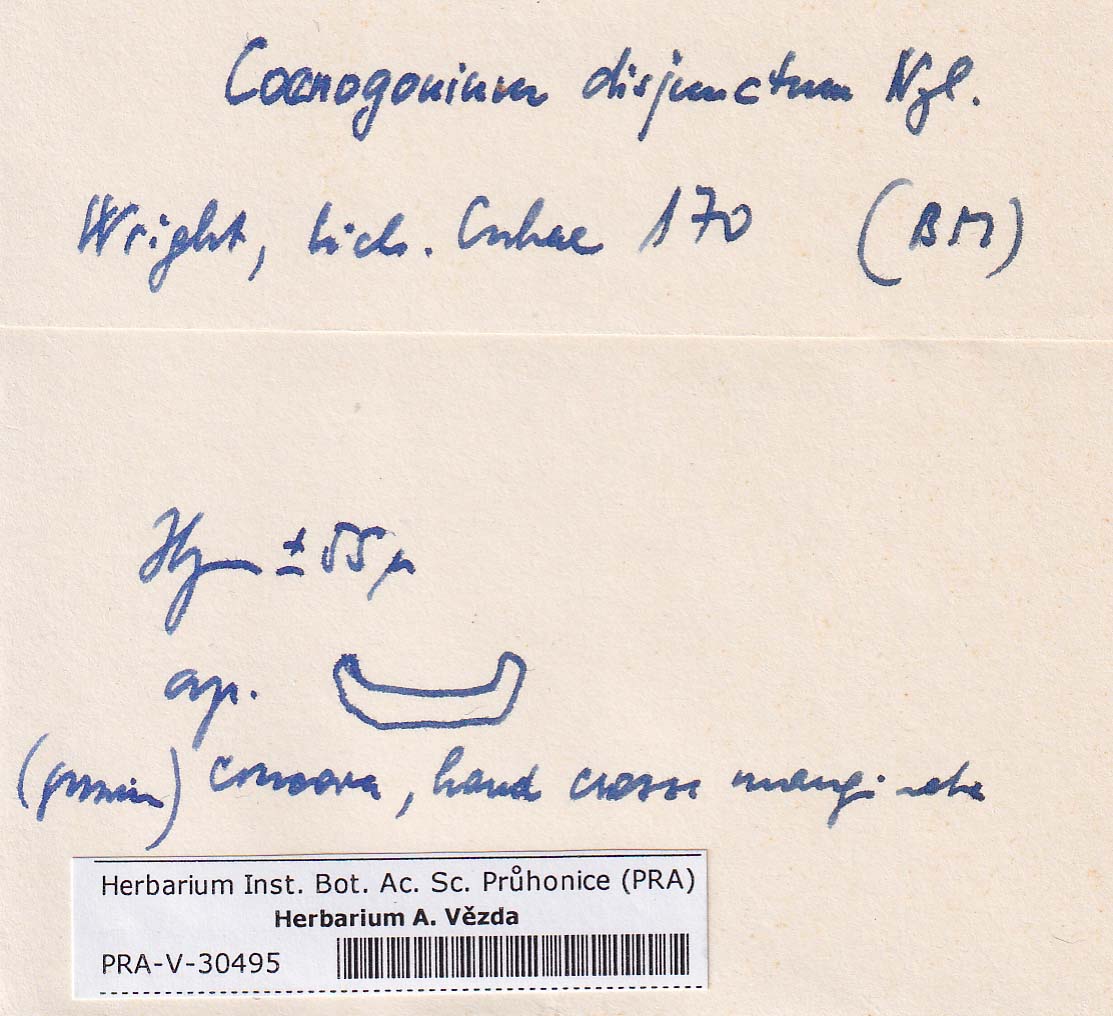 Coenogonium disjunctum Nyl.
Wright, Lich. Cubae 170 (BM)
Hy ± 55 µ
ap.
concava, haud crasse margi nata
Herbarium Inst. Bot. Ac. Sc. Průhonice (PRA)
Herbarium A. Vězda
PRA-V-30495